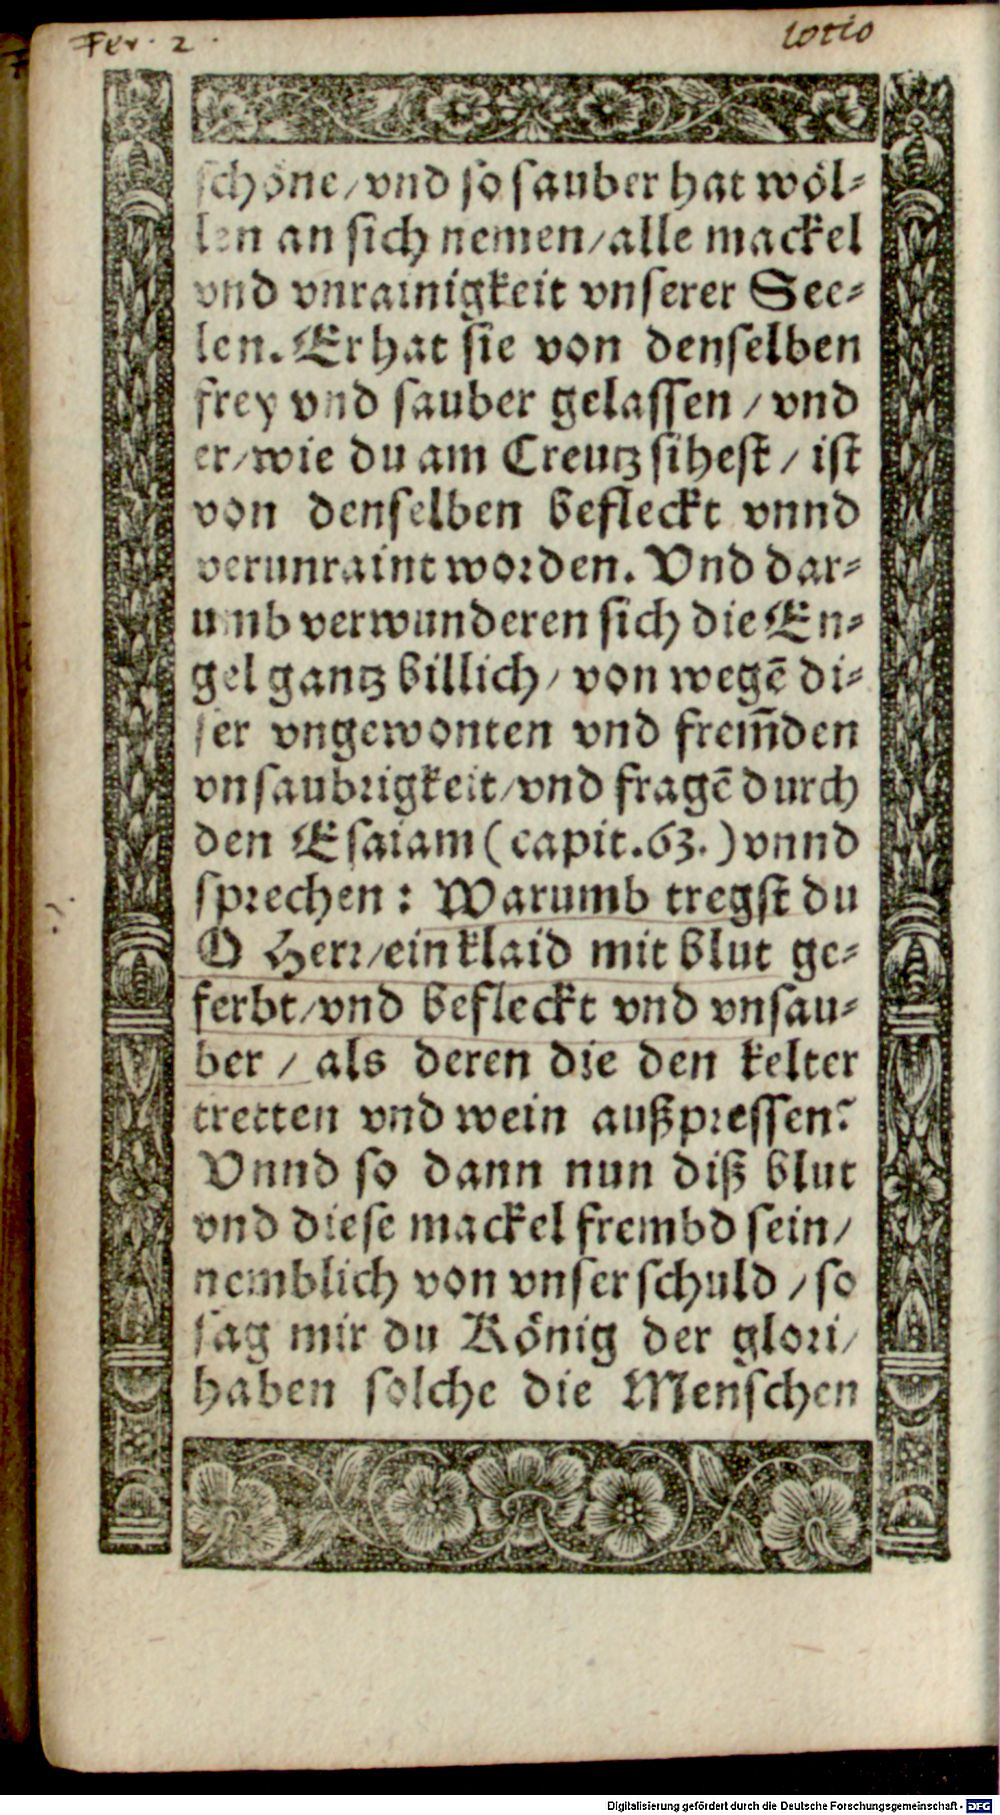 Fer. 2.
lotio
schöne/vnd so sauber hat wöl-
len an sich nemen/alle mackel
vnd vnrainigkeit vnserer See-
len. Er hat sie von denselben
frey vnd sauber gelassen / vnd
er/wie du am Creutz sihest / ist
von denselben befleckt vnnd
verunraint worden. Vnd dar-
umb verwunderen sich die En-
gel gantz billich/ von wegē di-
ser vngewonten vnd frem̄den
vnsaubrigkeit/vnd fragē durch
den Esaiam (capit.63.) vnnd
sprechen: Warumb tregst du
O Herr/ein klaid mit blut ge-
ferbt/vnd befleckt vnd vnsau-
ber / als deren die den kelter
tretten vnd wein außpressen?
Vnnd so dann nun diß blut
vnd diese mackel frembd sein/
nemblich von vnser schuld / so
sag mir du König der glori/
haben solche die Menschen
Digitalisierung gefördert durch die Deutsche Forschungsgemeinschaft - DFG